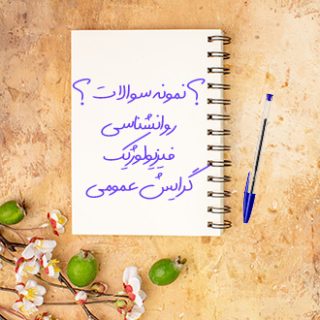 ؟ نمونه سوالات ؟
روانشناسی
فیزیولوژیک
گرایش عمومی